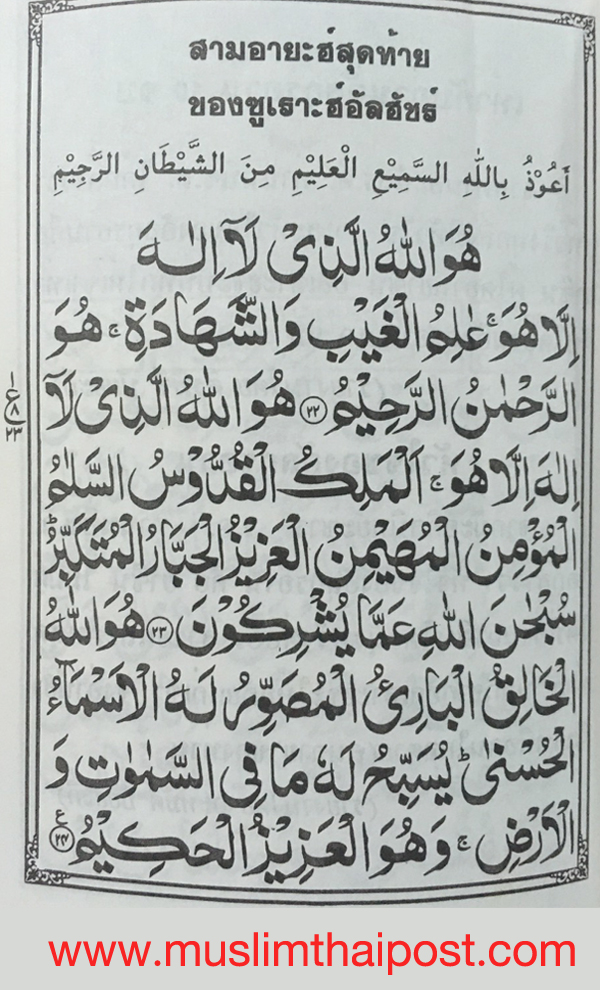 สามอายะฮ์สุดท้าย
ของซูเราะฮ์อัลฮัชร์
اَعُوْذُ بِاللّٰهِ السَّمِيْعِ الْعَلِيْمِ مِنَ الشَّيْطَانِ الرَّجِيْمِ
هُوَ اللّٰهُ الَّذِىْ لَآ اِلٰهَ
اِلَّا هُوَ ۚ عٰلِمُ الْغَيْبِ وَالشَّهَادَةِ ۚ هُوَ
الرَّحْمٰنُ الرَّحِيْمُ ﴿٢٢﴾ هُوَ اللّٰهُ الَّذِىْ لَآ
ع ٨ ٢٣
اِلٰهَ اِلَّا هُوَ ۚ اَلْمَلِكُ الْقُدُّوْسُ السَّلٰمُ
الْمُؤْمِنُ الْمُهَيْمِنُ الْعَزِيْزُ الْجَبَّارُ الْمُتَكَبِّرُ ؕ
سُبْحٰنَ اللّٰهِ عَمَّا يُشْرِكُوْنَ ﴿٢٣﴾ هُوَ اللّٰهُ
الْخَالِقُ الْبَارِئُ الْمُصَوِّرُ لَهُ الْاَسْمَآءُ
الْحُسْنٰى ؕ يُسَبِّحُ لَهٗ مَا فِى السَّمٰوٰتِ وَ
الْاَرْضِ ۚ وَهُوَ الْعَزِيْزُ الْحَكِيْمُ ﴿٢٤﴾ ع
www.muslimthaipost.com